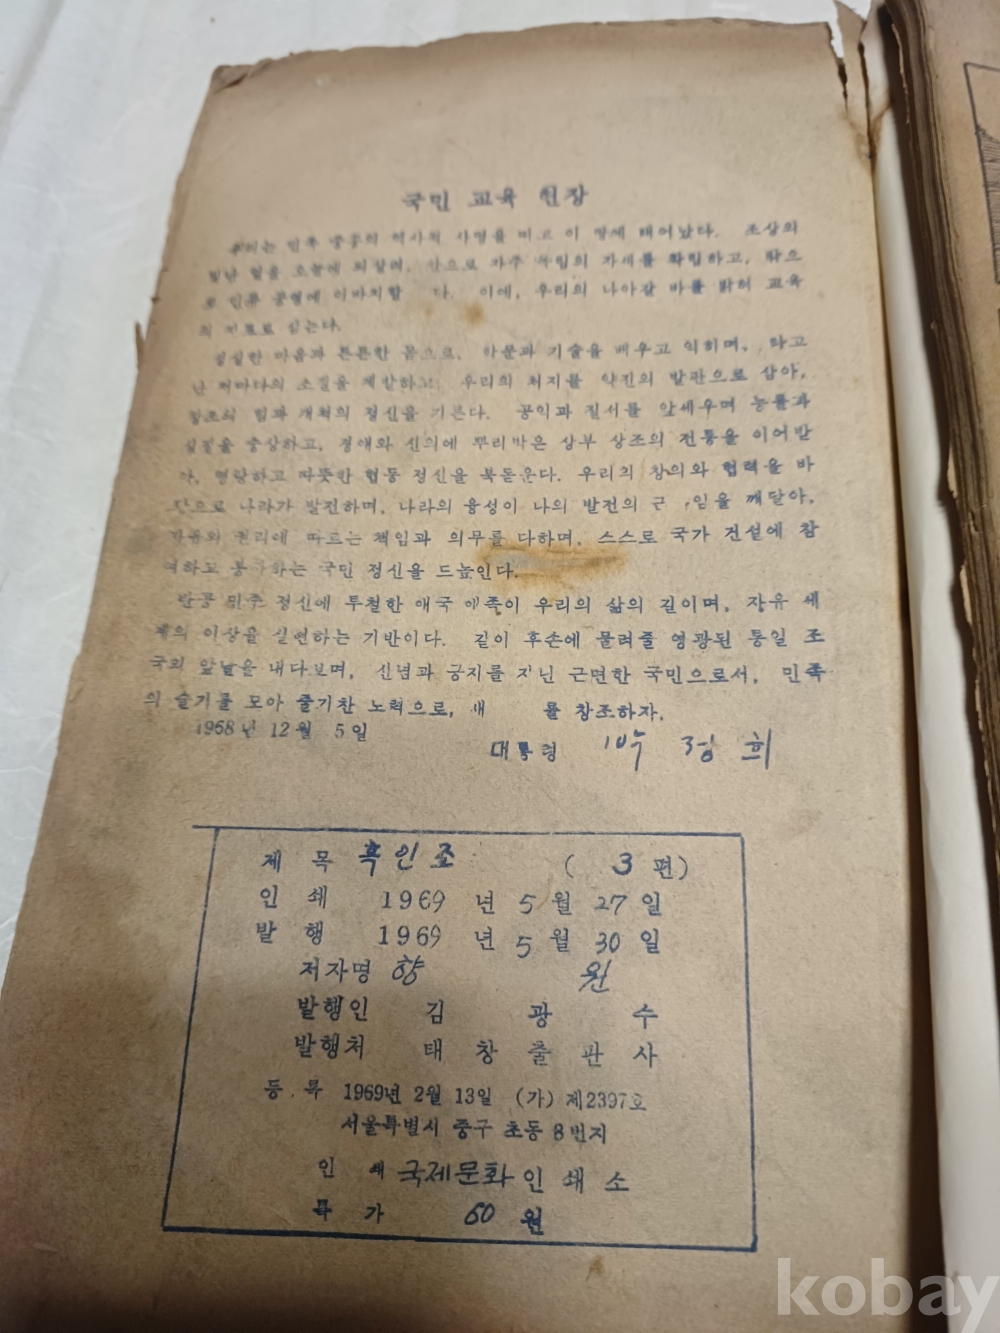 국민 교육 헌장
우리는 민족 중흥의 역사적 사명을 띠고 이 땅에 태어났다. 조상의
빛난 얼을 오늘에 되살려, 안으로 자주 독립의 자세를 확립하고, 밖으
로 인류 공영에 이바지할 다. 이에, 우리의 나아갈 바를 밝혀 교육
의 지표로 삼는다.
성실한 마음과 튼튼한 몸으로, 학문과 기술을 배우고 익히며, 타고
난 저마다의 소질을 계발하고, 우리의 처지를 약진의 발판으로 삼아,
창조의 힘과 개척의 정신을 기른다. 공익과 질서를 앞세우며 능률과
실질을 숭상하고, 경애와 신의에 뿌리박은 상부 상조의 전통을 이어받
아, 명랑하고 따뜻한 협동 정신을 북돋운다. 우리의 창의와 협력을 바
탕으로 나라가 발전하며, 나라의 융성이 나의 발전의 근 임을 깨달아,
자유와 권리에 따르는 책임과 의무를 다하며, 스스로 국가 건설에 참
여하고 봉사하는 국민 정신을 드높인다.
반공 민주 정신에 투철한 애국 애족이 우리의 삶의 길이며, 자유 세
계의 이상을 실현하는 기반이다. 길이 후손에 물려줄 영광된 통일 조
국의 앞날을 내다보며, 신념과 긍지를 지닌 근면한 국민으로서, 민족
의 슬기를 모아 줄기찬 노력으로, 새 를 창조하자.
1968년 12월 5일
대통령 박정희
제 목 흑인조 ( 3 편)
인 쇄 1969 년 5 월 27 일
발 행 1969 년 5 월 30 일
저자명 향 원
발행인 김 광 수
발행처 태 창 출 판 사
등 록 1969년 2월 13일 (가) 제2397호
서울특별시 중구 초동 8번지
인 쇄 국제문화인쇄소
특 가 60 원
kobay